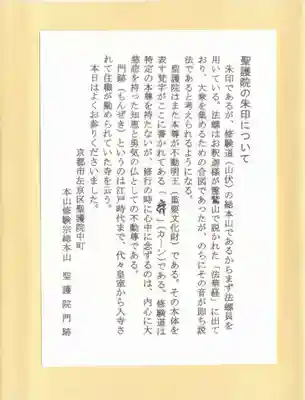 聖護院の朱印について
朱印であるが、修験道（山伏）の総本山であるからまず法螺貝を
用いている。法螺はお釈迦様が霊鷲山で説かれた「法華経」に出て
おり、大衆を集めるための合図であったが、のちにその音が即ち説
法であると考えられるようになる。
聖護院はまた本尊が不動明王（重要文化財）である。その本体を
表す梵字がここに書かれてある「
」（カーン）である。修験道は
特定の本尊を持たないが、修行の時に心中に念ずるのは、内心に大
慈悲を持った知恵と勇気の仏としての不動尊である。
門跡（もんぜき）というのは江戸時代まで、代々皇室から入寺さ
れて住職が勤められていた寺を云う。
本日はよくお参りくださいました。
京都市左京区聖護院中町
本山修験宗総本山　聖護院門跡